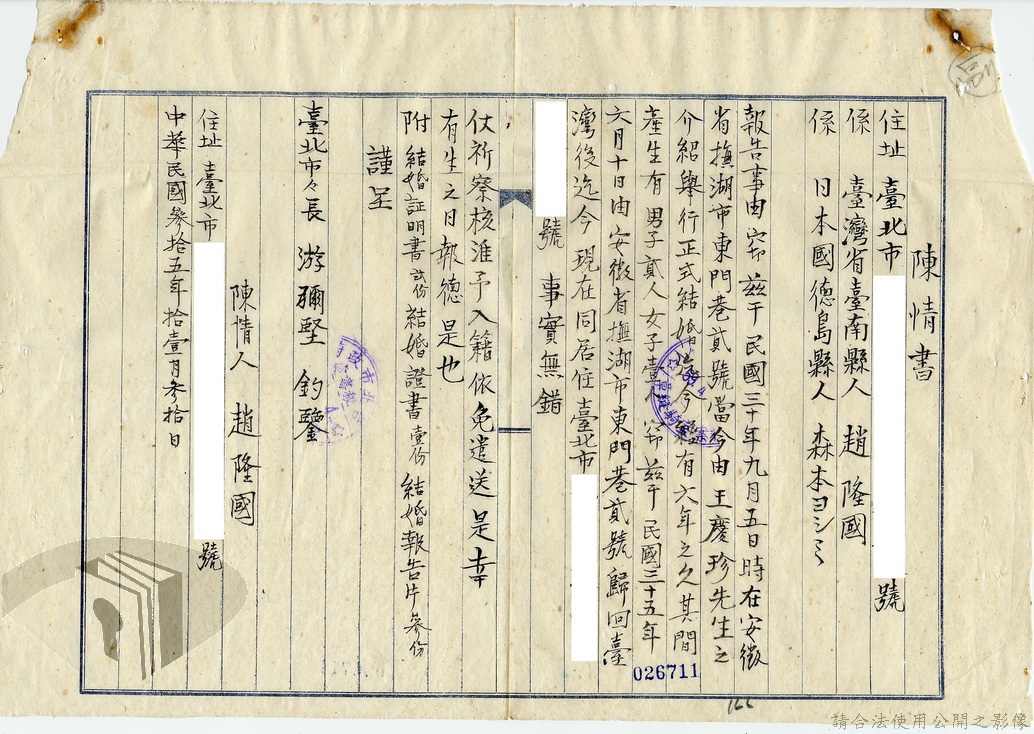 陳情書
住址 臺北市 號
係 臺灣省臺南縣人 趙隆國
係 日本國德島縣人 森本ヨシミ
報告事由 窃玆于民國三十年九月五日時在安徽
省撫湖市東門巷貳號當今由王慶珍先生之
介紹舉行正式結婚迄今經有六年之久其間
產生有男子貳人女子壹人窃玆于民國三十五年
六月十日由安徽省撫湖市東門巷貳號歸回臺
灣後迄今現在同居住臺北市
號 事實無錯
伏祈察核准予入籍依免遣送是幸
有生之日報德是也
附 結婚証明書貳份 結婚證書壹份 結婚報告片參份
謹呈
臺北市々長 游彌堅 鈞鑒
陳情人 趙隆國
住址 臺北市 號
中華民國參拾五年拾壹月參拾日
026711
請合法使用公開之影像